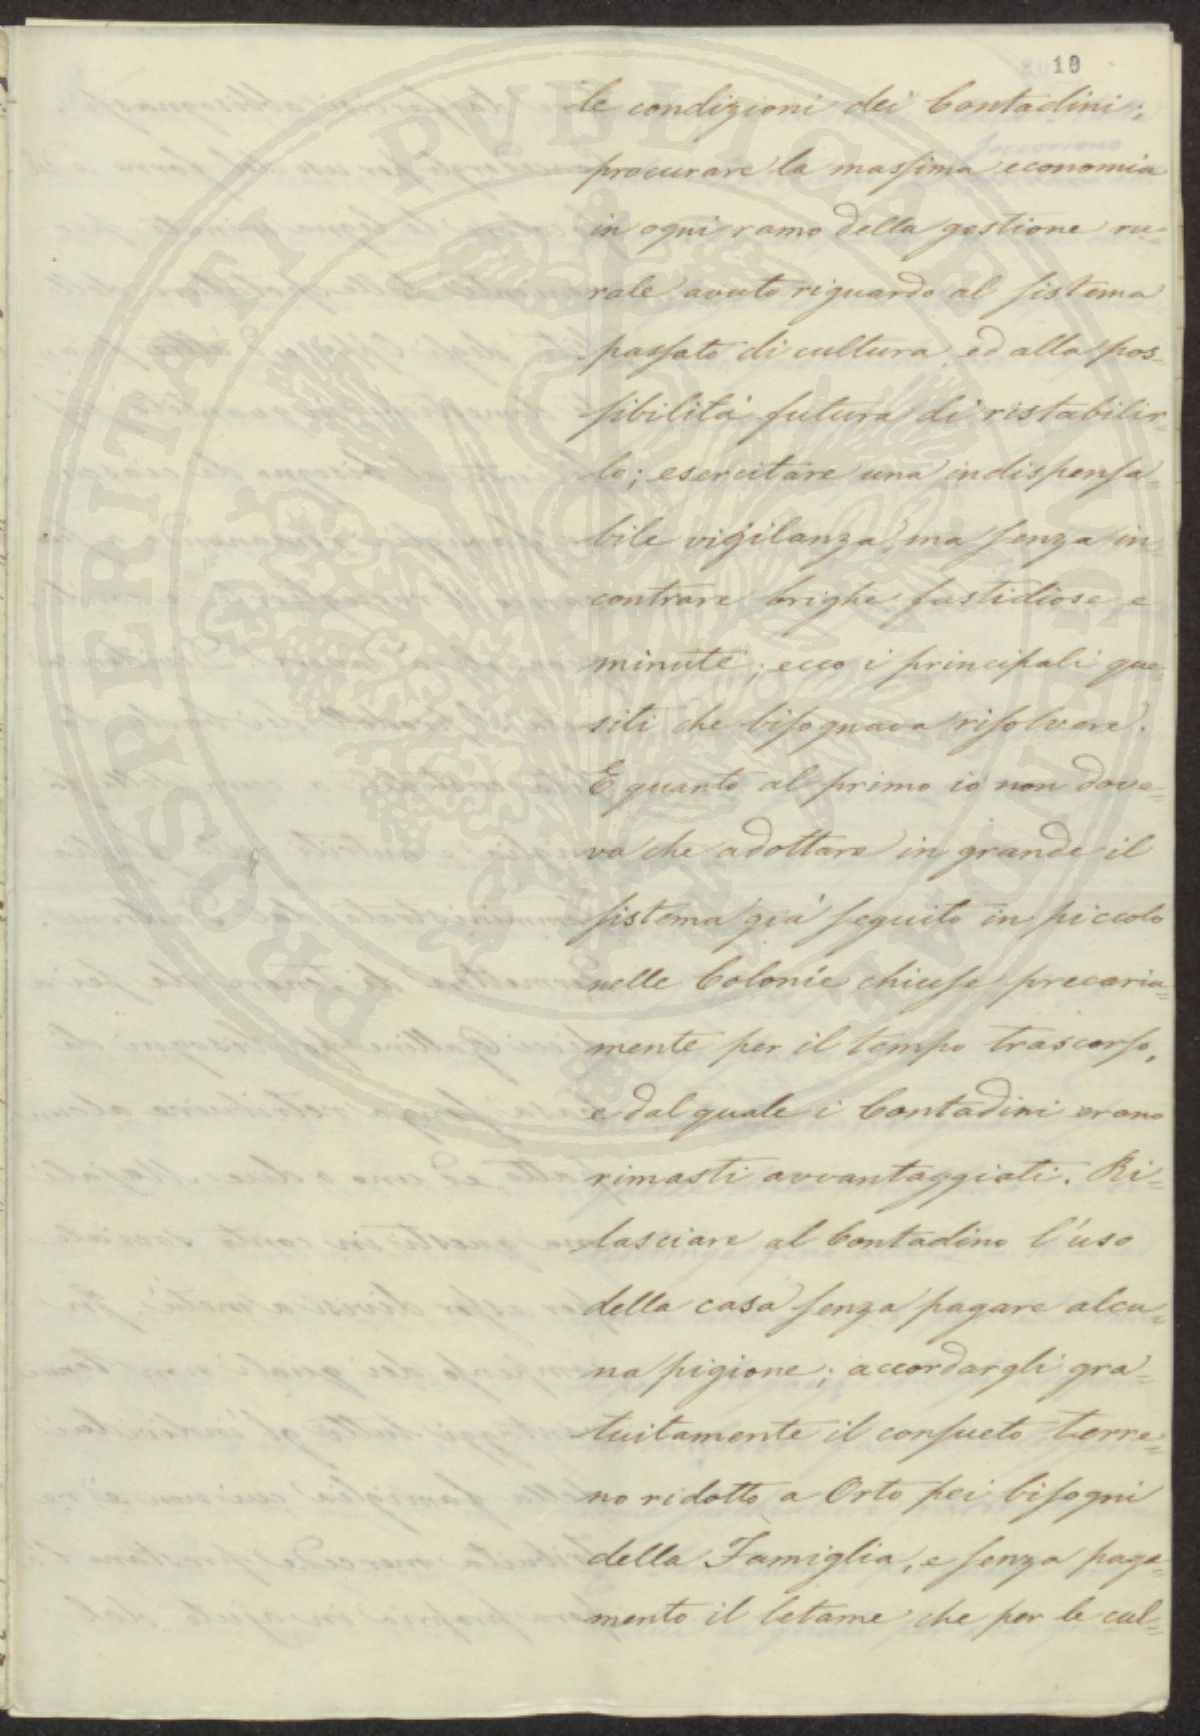 10
le condizioni dei Contadini;
procurare la massima economia
in ogni ramo della gestione ru=
rale avuto riguardo al sistema
passato di cultura ed alla pos=
sibilitá futura di ristabilir=
lo; esercitare una indispensa=
bile vigilanza, ma senza in=
contrare brighe fastidiose e
minute; ecco i principali que=
siti che bisognava risolvere.
E quanto al primo io non dove=
va che adottare in grande il
sistema giá seguito in piccolo
nelle Colonie chiuse precaria=
mente per il tempo trascorso,
e dal quale i Contadini erano
rimasti avvantaggiati. Ri=
lasciare al Contadino l'uso
della casa senza pagare alcu=
na pigione; accordargli gra=
tuitamente il consueto terre=
no ridotto a Orto pei bisogni
della Famiglia, e senza paga=
mento il letame che per le cul=
PROSPERITATI PVBLICAE